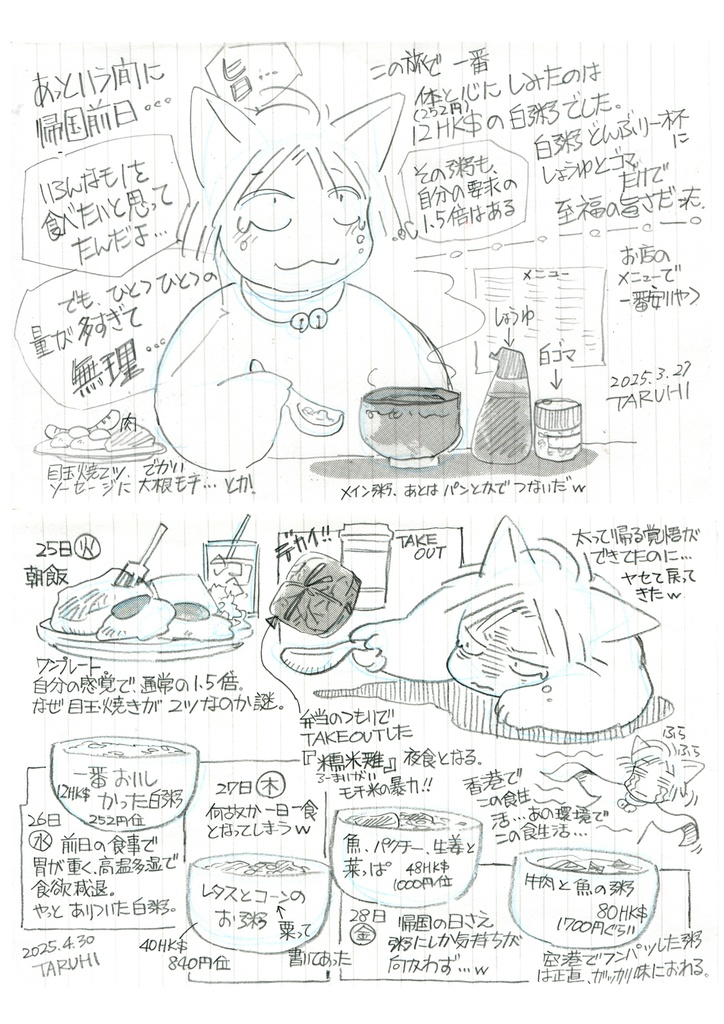 あっという間に
帰国前日…
旨…
この旅で一番
体と心にしみたのは
(252円)
12HK$の白粥でした。
白粥どんぶり一杯に
しょうゆとゴマ
だけで
至福の旨さだった。
いろんなモノを
食べたいと思って
たんだよ…
その粥も、
自分の要求の
1.5倍はある
でも、ひとつひとつの
量が多すぎて
無理…
お店の
メニューで
一番安いやつ
メニュー
しょうゆ
白ゴマ
2025.3.27
TARUHI
肉
目玉焼2ツ、
ソーセージに
でかい
大根モチ…とか!
メイン粥、あとはパンとかでつないだw
25日(火)
朝飯
デカイ!!
TAKE
OUT
太って帰る覚悟が
できてたのに…
ヤセて戻って
きたw
ワンプレート。
自分の感覚で、通常の1.5倍。
なぜ目玉焼きが2ツなのか謎。
弁当のつもりで
TAKEOUTした
『糯米雞』夜食となる。
ろーまいがい
モチ米の暴力!!
ふら
ふら
香港で
この食生
活…あの環境で
この食生活…
一番おいし
かった白粥
12HK$
252円位
26日
(水)
前日の食事で
胃が重く、高温多湿で
食欲減退。
やっとありついた白粥。
27日(木)
何故か一日一食
となってしまうw
レタスとコーンの
お粥
粟って
書いてあった
40HK$
840円位
魚、パクチー、生姜と
菜っぱ
48HK$
1000円位
28日
(金)
帰国の日さえ
粥にしか気持ちが
向かわず…w
牛肉と魚の粥
80HK$
1700円ぐらい
空港でフンパツした粥
は正直、ガッカリ味におわる。
2025.4.30
TARUHI